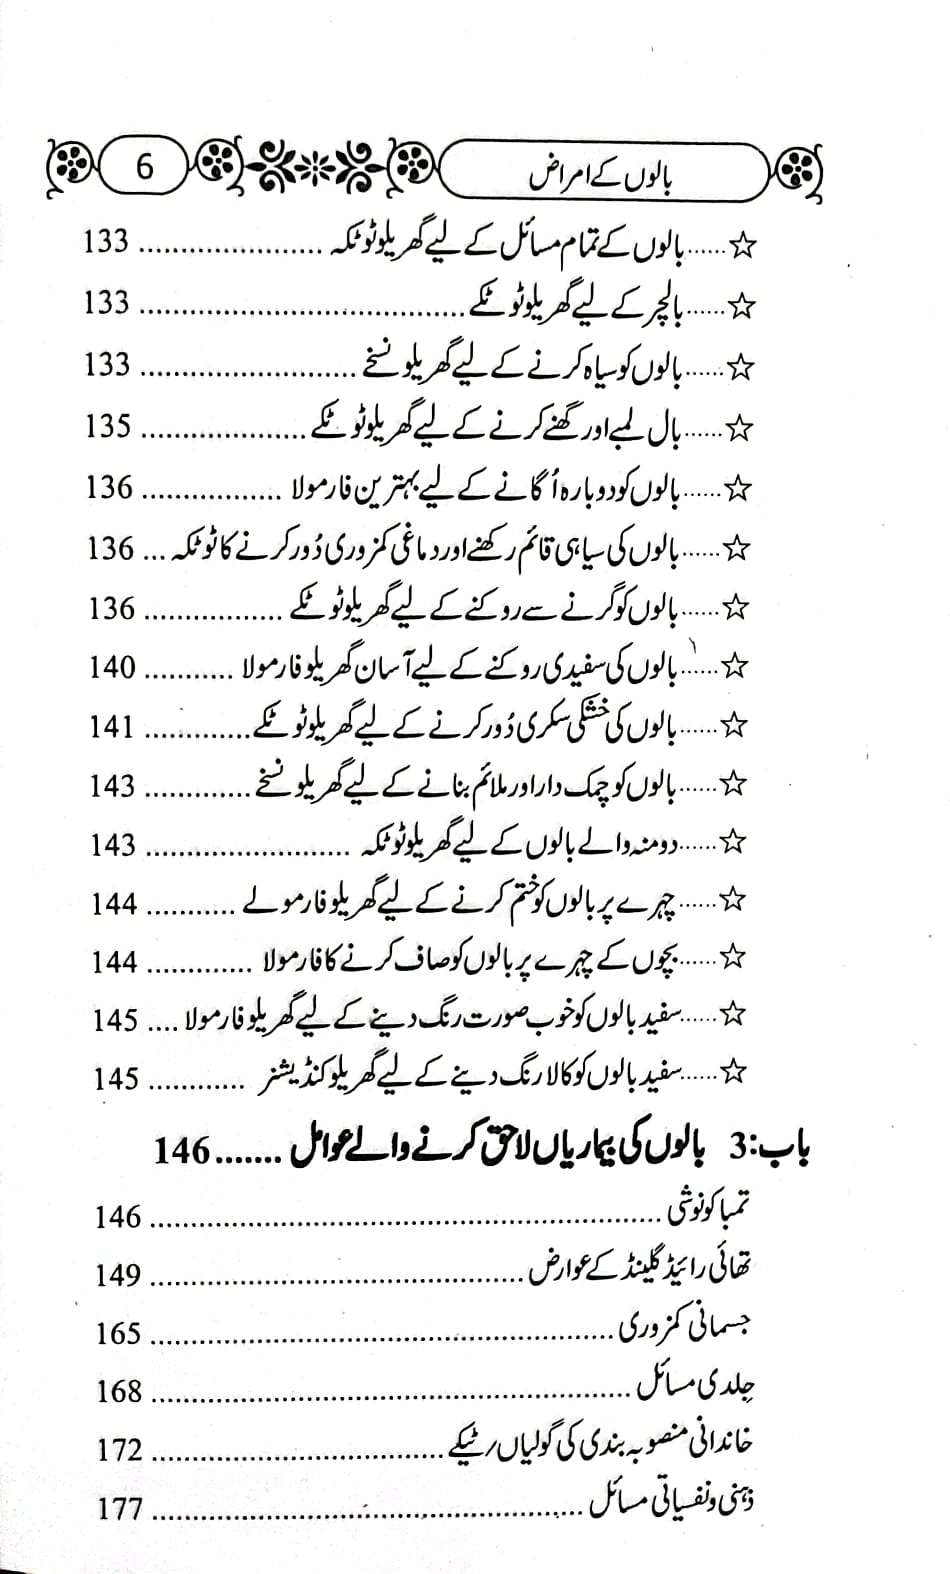 بالوں کے امراض 6
☆......بالوں کے تمام مسائل کے لیے گھریلو ٹوٹکہ ...................... 133
☆......بالچر کے لیے گھریلو ٹوٹکے ....................................... 133
☆......بالوں کو سیاہ کرنے کے لیے گھریلو نسخے .......................... 133
☆......بال لمبے اور گھنے کرنے کے لیے گھریلو ٹوٹکے .................... 135
☆......بالوں کو دوبارہ اُگانے کے لیے بہترین فارمولا ................. 136
☆......بالوں کی سیاہی قائم رکھنے اور دماغی کمزوری دُور کرنے کا ٹوٹکہ ... 136
☆......بالوں کو گرنے سے روکنے کے لیے گھریلو ٹوٹکے ................. 136
☆......بالوں کی سفیدی روکنے کے لیے آسان گھریلو فارمولا ........... 140
☆......بالوں کی خشکی سکری دُور کرنے کے لیے گھریلو ٹوٹکے ............. 141
☆......بالوں کو چمک دار اور ملائم بنانے کے لیے گھریلو نسخے ............. 143
☆......دومنہ والے بالوں کے لیے گھریلو ٹوٹکہ ......................... 143
☆......چہرے پر بالوں کو ختم کرنے کے لیے گھریلو فارمولے ........... 144
☆......بچوں کے چہرے پر بالوں کو صاف کرنے کا فارمولا ............. 144
☆......سفید بالوں کو خوب صورت رنگ دینے کے لیے گھریلو فارمولا .... 145
☆......سفید بالوں کو کالا رنگ دینے کے لیے گھریلو کنڈیشنر ............ 145
باب:3 بالوں کی بیماریاں لاحق کرنے والے عوامل .......146
تمباکونوشی ............................................................. 146
تھائی رائیڈ گلینڈ کے عوارض ............................................. 149
جسمانی کمزوری ........................................................ 165
جِلدی مسائل .......................................................... 168
خاندانی منصوبہ بندی کی گولیاں/ٹیکے ................................... 172
ذہنی و نفسیاتی مسائل .................................................... 177